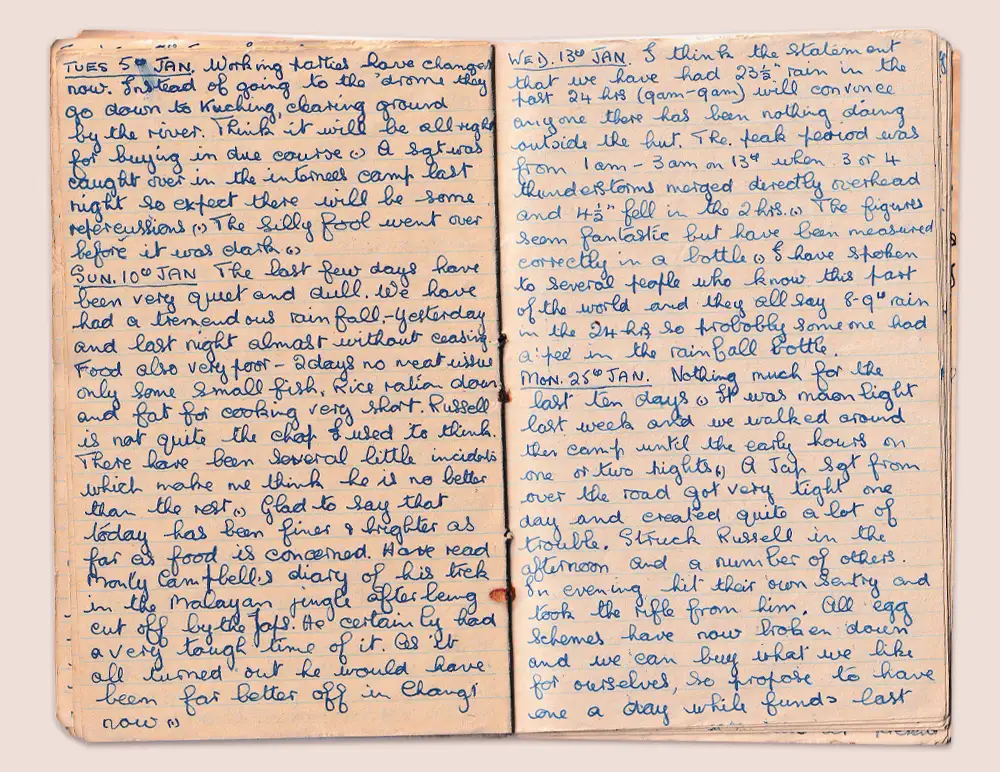 TUES 5th JAN. Working parties have changed
now. Instead of going to the 'drome they
go down to Kuching, clearing ground
by the river. Think it will be all right
for buying in due course. A Sgt was
caught over in the internees camp last
night so expect there will be some
repercussions. The silly fool went over
before it was dark.
SUN. 10th JAN The last few days have
been very quiet and dull. We have
had a tremendous rainfall - yesterday
and last night almost without ceasing.
Food also very poor - 2 days no meat issue
only some small fish. Rice ration down
and fat for cooking very short. Russell
is not quite the chap I used to think.
There have been several little incidents
which make me think he is no better
than the rest. Glad to say that
today has been finer & brighter as
far as food is concerned. Have read
Monty Campbell's diary of his trek
in the Malayan jungle after being
cut off by the Japs. He certainly had
a very tough time of it. As it
all turned out he would have
been far better off in Changi
now.
WED. 13th JAN. I think the statement
that we have had 23½" rain in the
past 24 hrs (9am-9am) will convince
anyone there has been nothing doing
outside the hut. The peak period was
from 1am - 3am on 13th when 3 or 4
thunderstorms merged directly overhead
and 4½" fell in the 2 hrs. The figures
seem fantastic but have been measured
correctly in a bottle. I have spoken
to several people who know this part
of the world and they all say 8-9" rain
in the 24 hrs so probably someone had
a 'pee' in the rainfall bottle.
MON. 25th JAN. Nothing much for the
last ten days. It was moonlight
last week and we walked around
the camp until the early hours on
one or two nights. A Jap Sgt from
over the road got very tight one
day and created quite a lot of
trouble. Struck Russell in the
afternoon and a number of others.
In evening hit their own sentry and
took the rifle from him. All egg
schemes have now broken down
and we can buy what we like
for ourselves, so propose to have
one a day while funds last